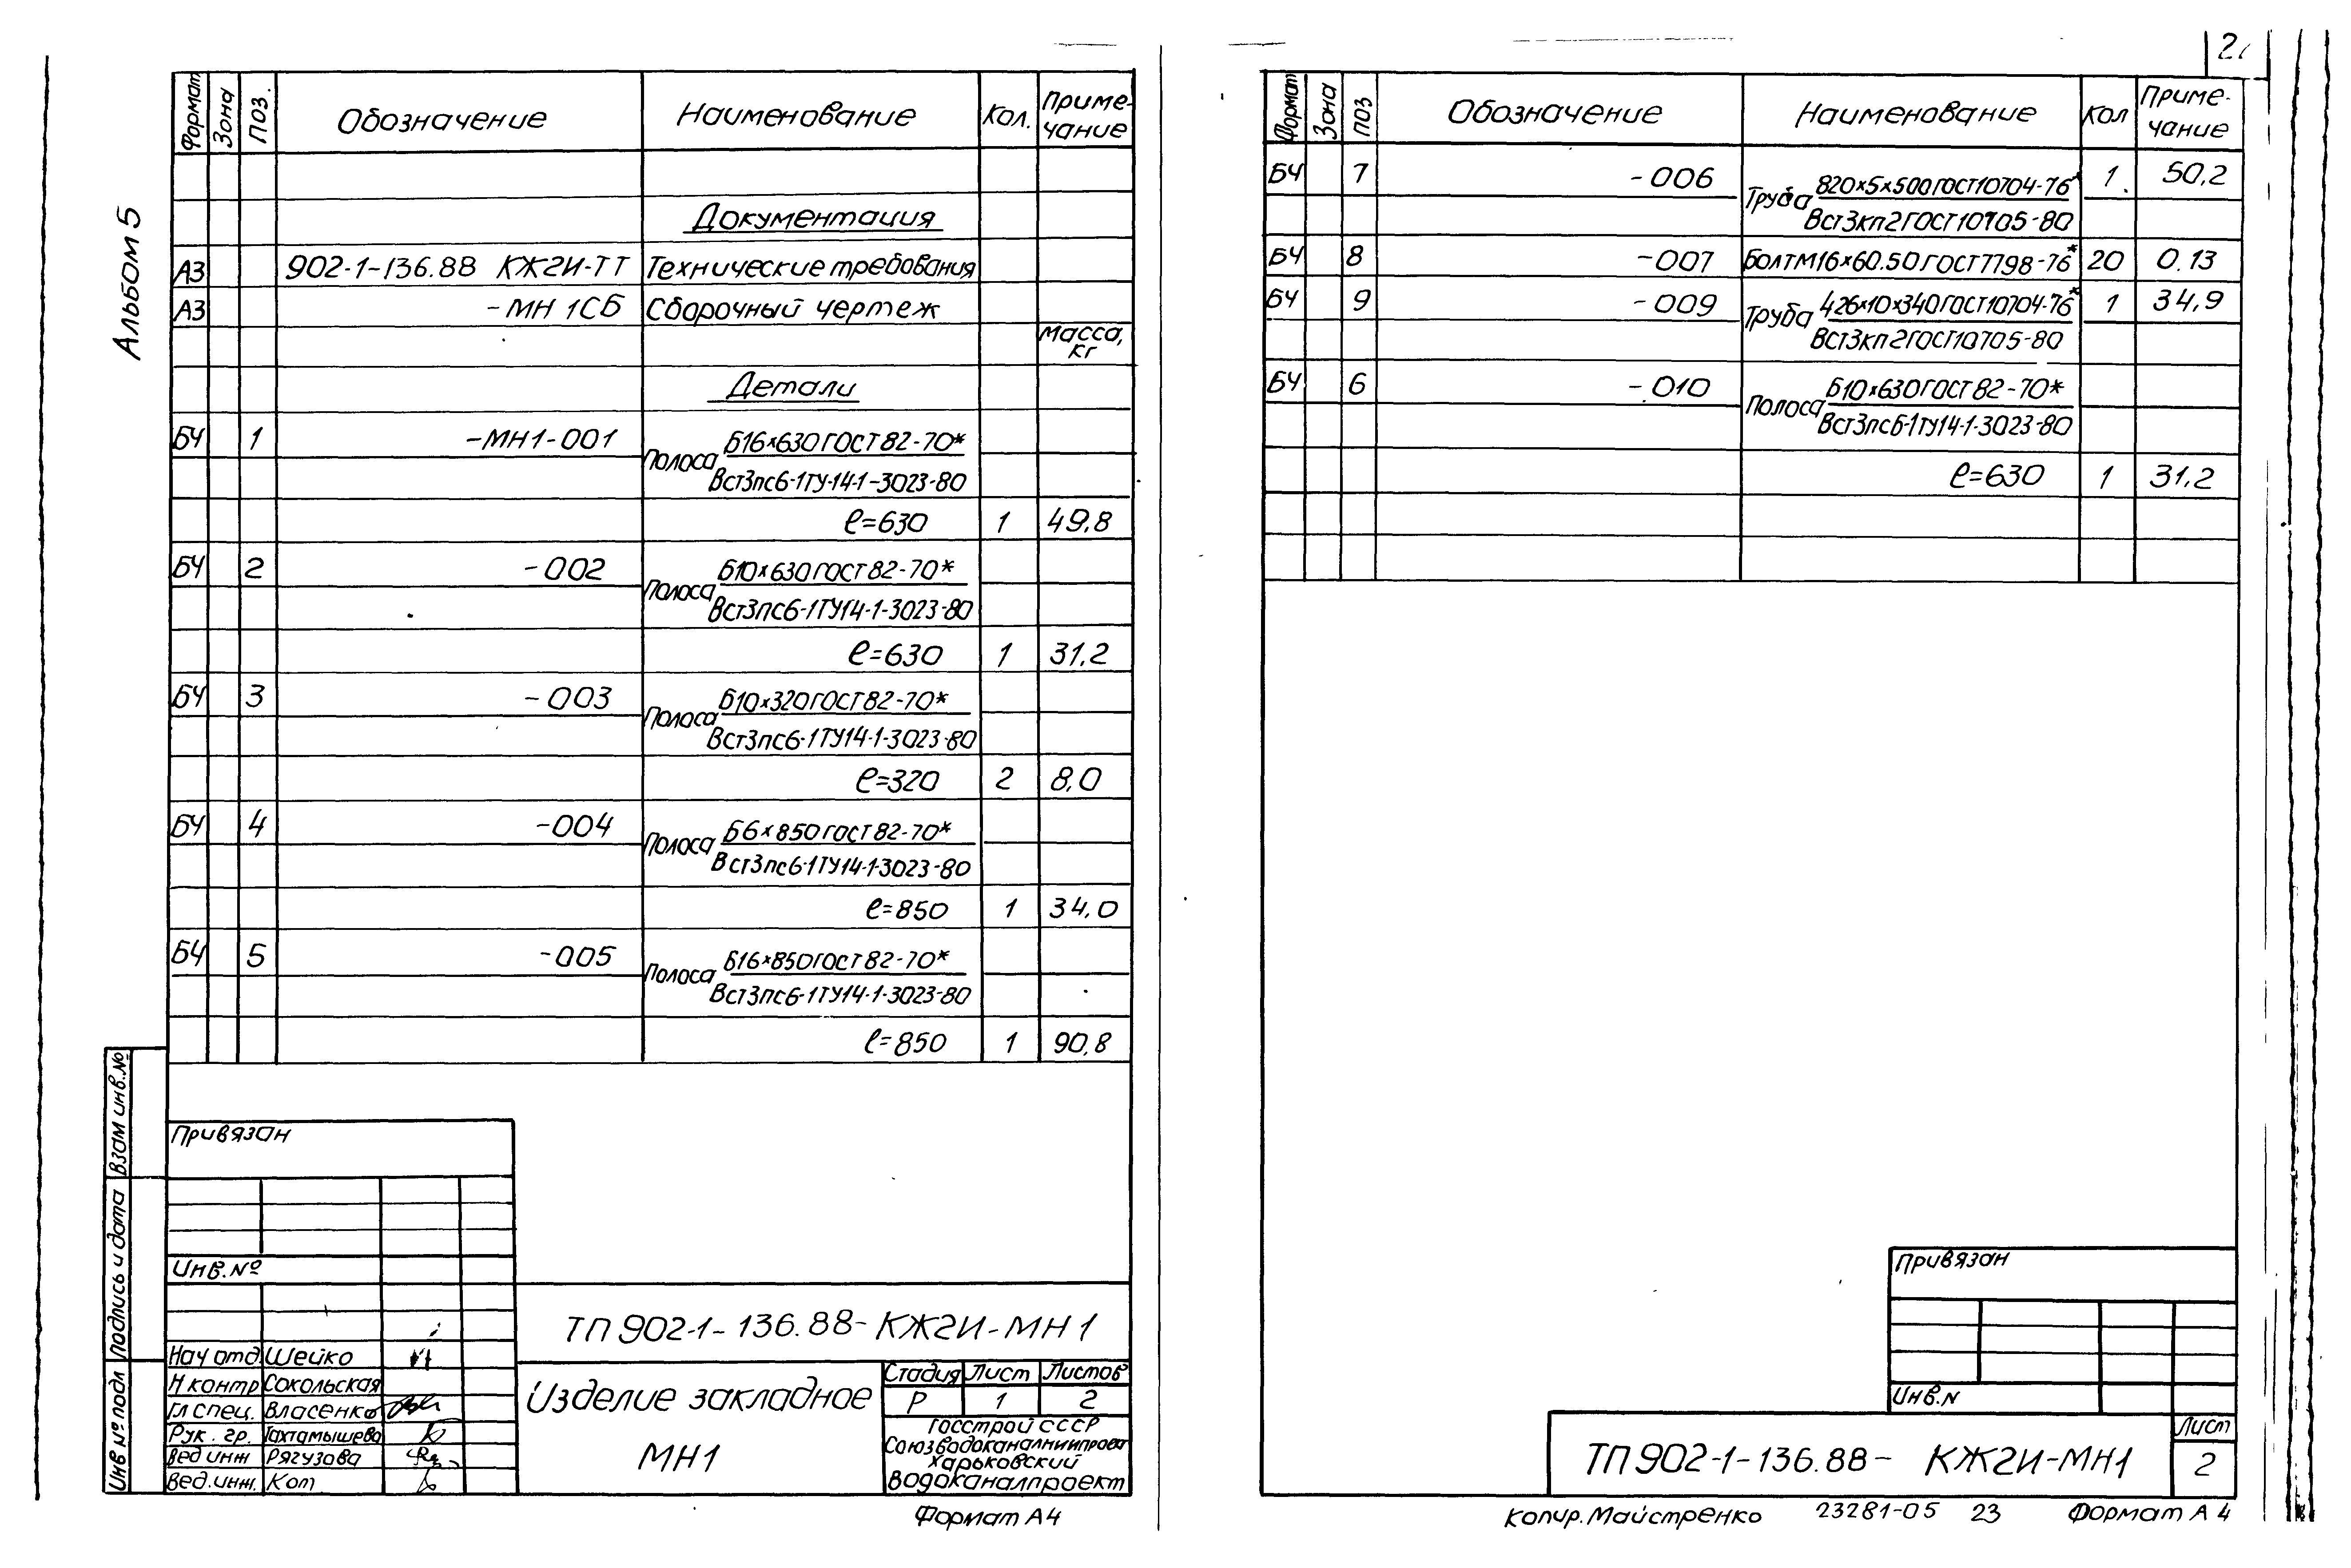 Альбом 5
Формат Зона Поз. Обозначение Наименование Кол. Приме-
чание
Документация
А3 902-1-136.88 КЖ2И-ТТ Технические требования
А3 -МН 1СБ Сборочный чертеж
масса,
кг
Детали
БЧ 1 -МН1-001 Полоса Б16×630 ГОСТ 82-70*
ВСт3пс6-1ТУ-14-1-3023-80
ℓ=630 1 49,8
БЧ 2 -002 Полоса Б10×630 ГОСТ 82-70*
ВСт3пс6-1ТУ14-1-3023-80
ℓ=630 1 31,2
БЧ 3 -003 Полоса Б10×320 ГОСТ 82-70*
ВСт3пс6-1ТУ14-1-3023-80
ℓ=320 2 8,0
БЧ 4 -004 Полоса Б6×850 ГОСТ 82-70*
ВСт3пс6-1ТУ14-1-3023-80
ℓ=850 1 34,0
БЧ 5 -005 Полоса Б16×850 ГОСТ 82-70*
ВСт3пс6-1ТУ14-1-3023-80
ℓ=850 1 90,8
Взам инв.№
Подпись и дата
Инв № подл
Привязан
Инв.№
Нач отд. Шейко
Н контр Сокольская
Гл спец. Власенко
Рук. гр. Тахтамышева
Вед инж Рягузова
Вед.инж. Кот
ТП 902-1-136.88-КЖ2И-МН1
Изделие закладное
МН1
Стадия Лист Листов
Р 1 2
Госстрой СССР
Союзводоканалниипроект
Харьковский
Водоканалпроект
Формат А4
Формат Зона Поз Обозначение Наименование Кол Приме-
чание
БЧ 7 -006 Труба 820×5×500 ГОСТ 10704-76* 1 50,2
ВСт3кп2 ГОСТ 10705-80
БЧ 8 -007 Болт М16×60.50 ГОСТ 7798-76* 20 0.13
БЧ 9 -009 Труба 426×10×340 ГОСТ 10704-76* 1 34,9
ВСт3кп2 ГОСТ 10705-80
БЧ 6 -010 Полоса Б10×630 ГОСТ 82-70*
ВСт3пс6-1ТУ14-1-3023-80
ℓ=630 1 31.2
Привязан
Инв.N
ТП 902-1-136.88- КЖ2И-МН1
Лист
2
Копир. Майстренко 23281-05 23 Формат А4